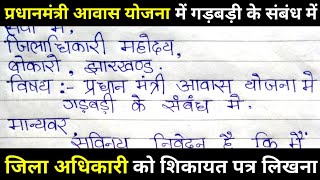 प्रधानमंत्री आवास योजना में गड़बड़ी के संबंध में
सेवा में,
जिलाधिकारी महोदय,
बोकारो, झारखण्ड.
विषय :- प्रधान मंत्री आवास योजना मे
गड़बड़ी के संबंध मे.
मान्यवर
सविनय निवेदन है कि मैं
जिला अधिकारी को शिकायत पत्र लिखना